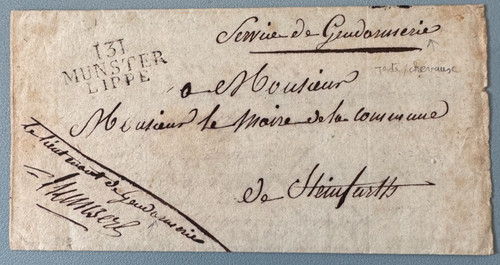 Service de Gendarmerie
131
MUNSTER
LIPPE
a Monsieur
Monsieur le Maire de la Commune
de Steinfurth
Le lieutenant de Gendarmerie